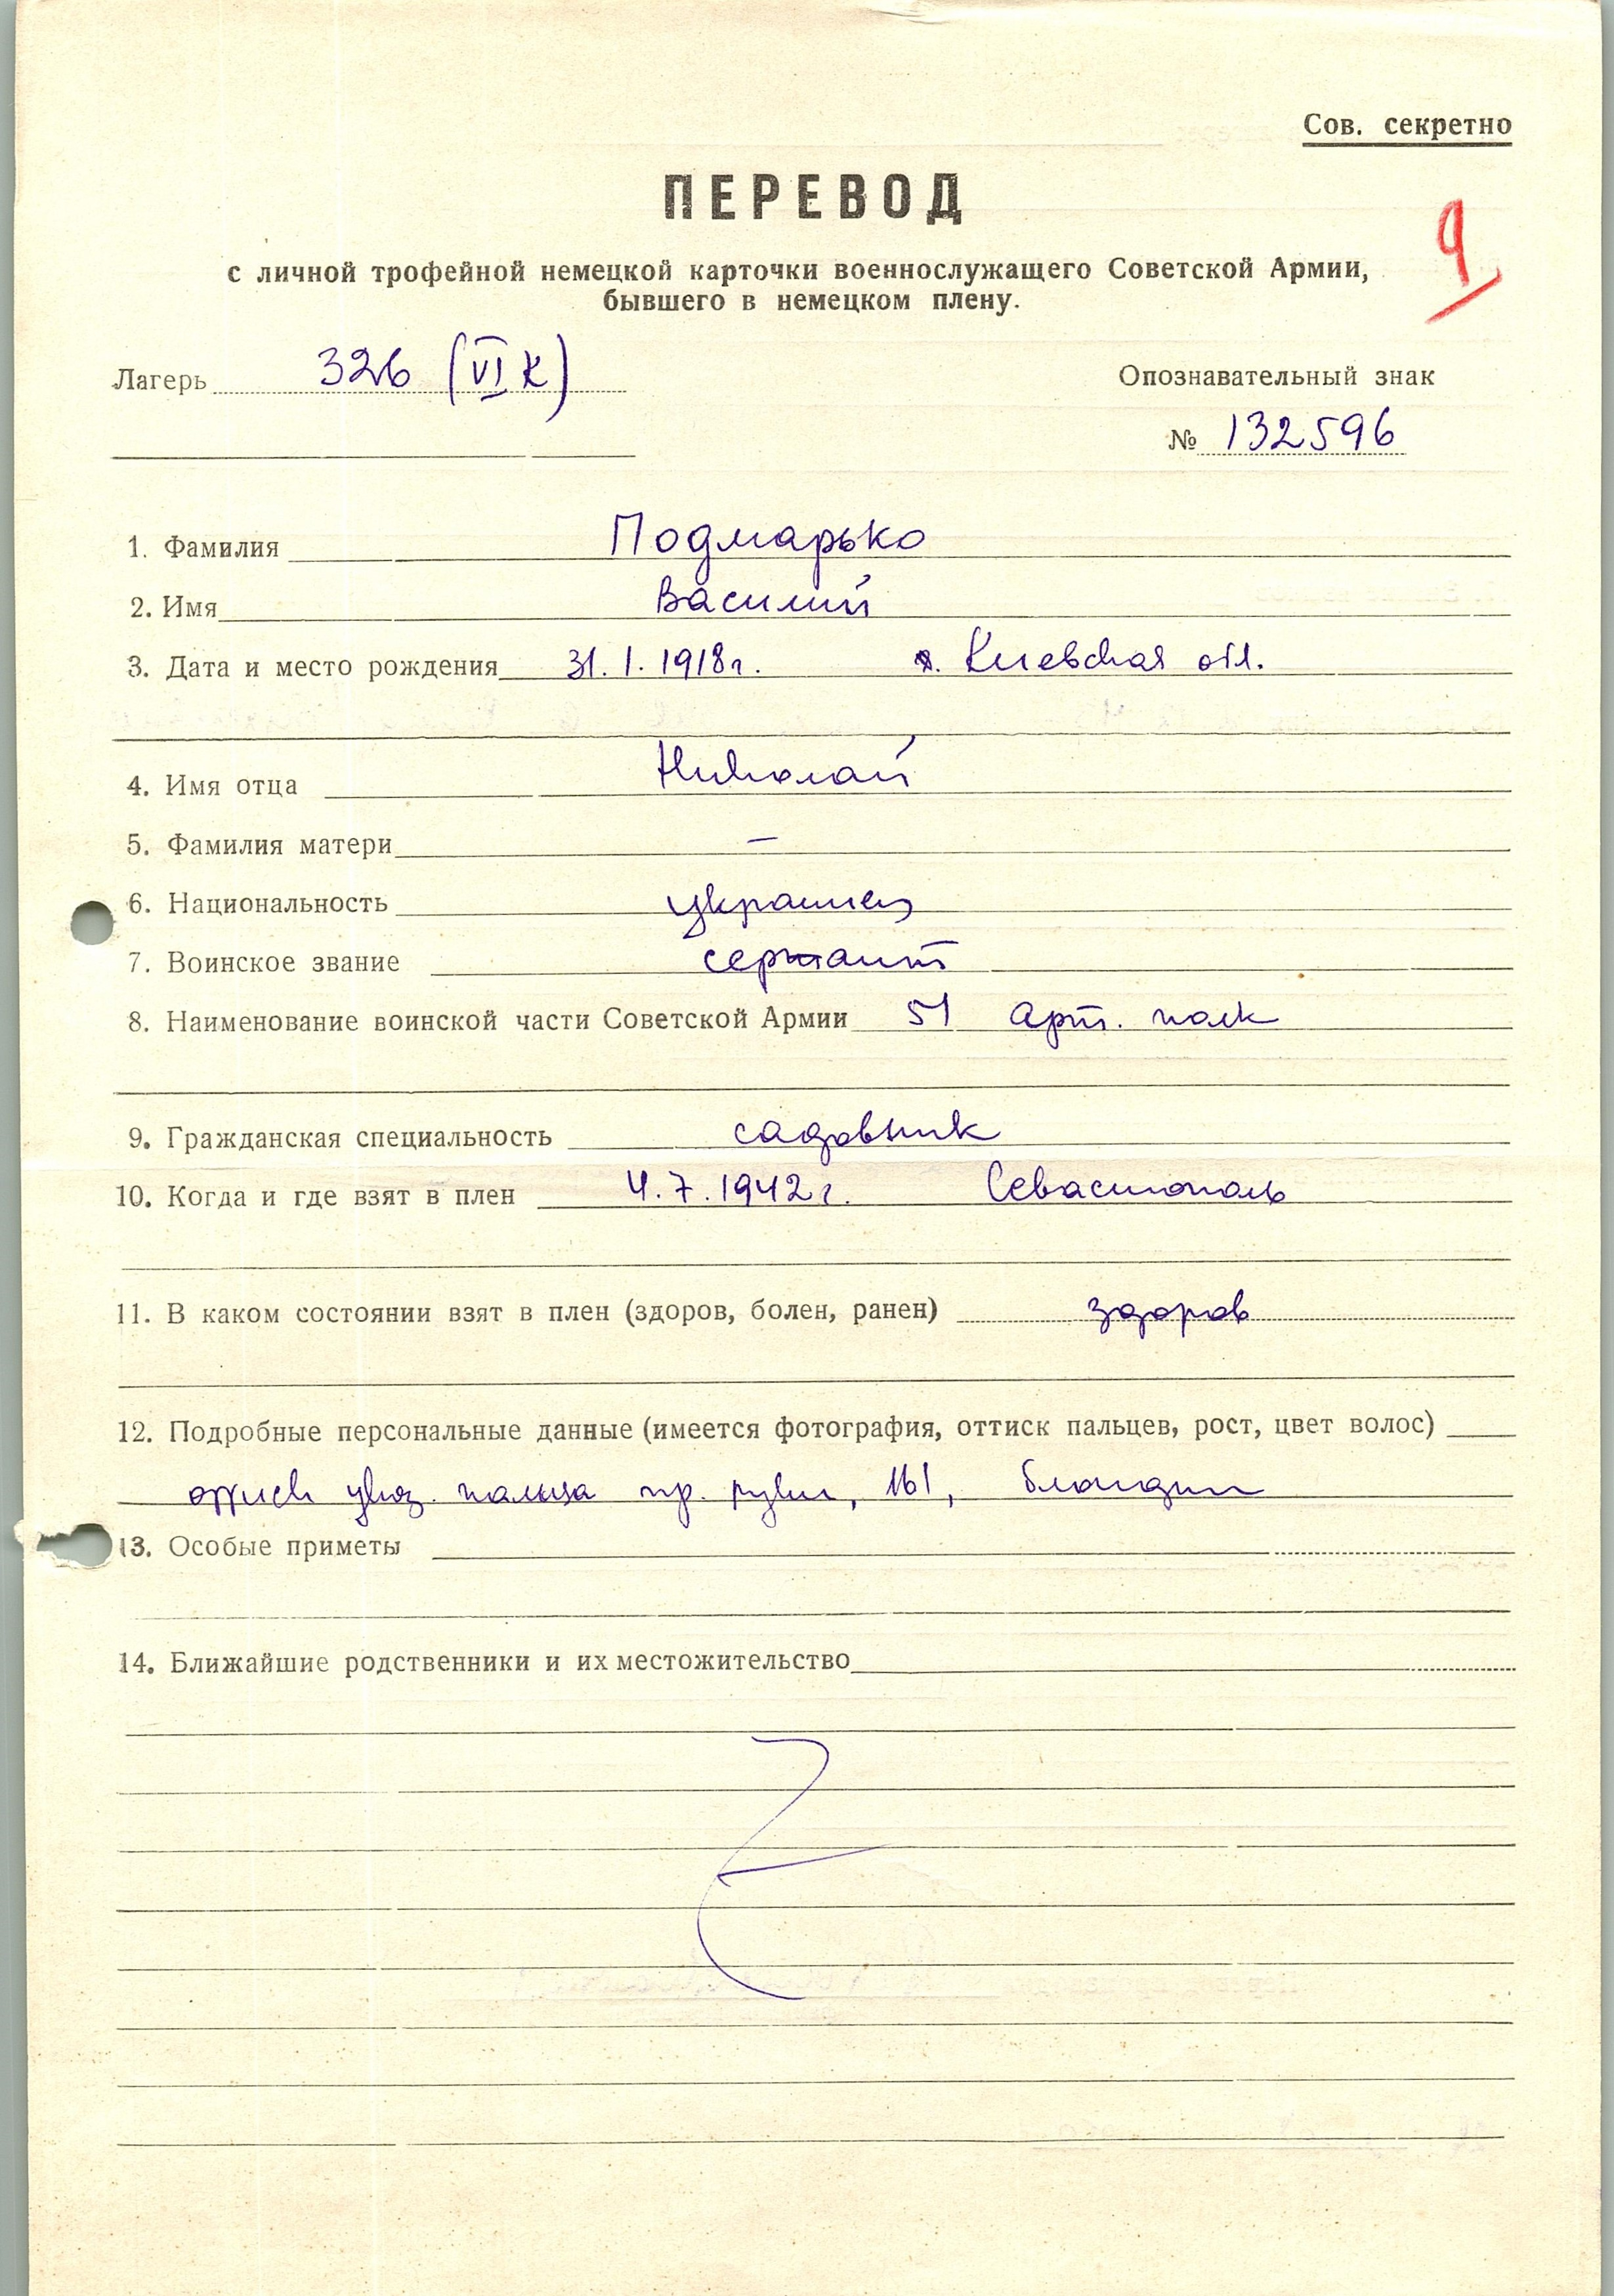 Сов. секретно
ПЕРЕВОД
9
с личной трофейной немецкой карточки военнослужащего Советской Армии,
бывшего в немецком плену.
Лагерь 326 (VI K)
Опознавательный знак
№ 132596
1. Фамилия Подмарько
2. Имя Василий
3. Дата и место рождения 31.1.1918г. Киевская обл.
4. Имя отца Николай
5. Фамилия матери —
6. Национальность украинец
7. Воинское звание сержант
8. Наименование воинской части Советской Армии 51 Арт. полк
9. Гражданская специальность садовник
10. Когда и где взят в плен 4.7.1942г. Севастополь
11. В каком состоянии взят в плен (здоров, болен, ранен) здоров
12. Подробные персональные данные (имеется фотография, оттиск пальцев, рост, цвет волос)
оттиск указ. пальца пр. руки, 161, блондин
13. Особые приметы
14. Ближайшие родственники и их местожительство